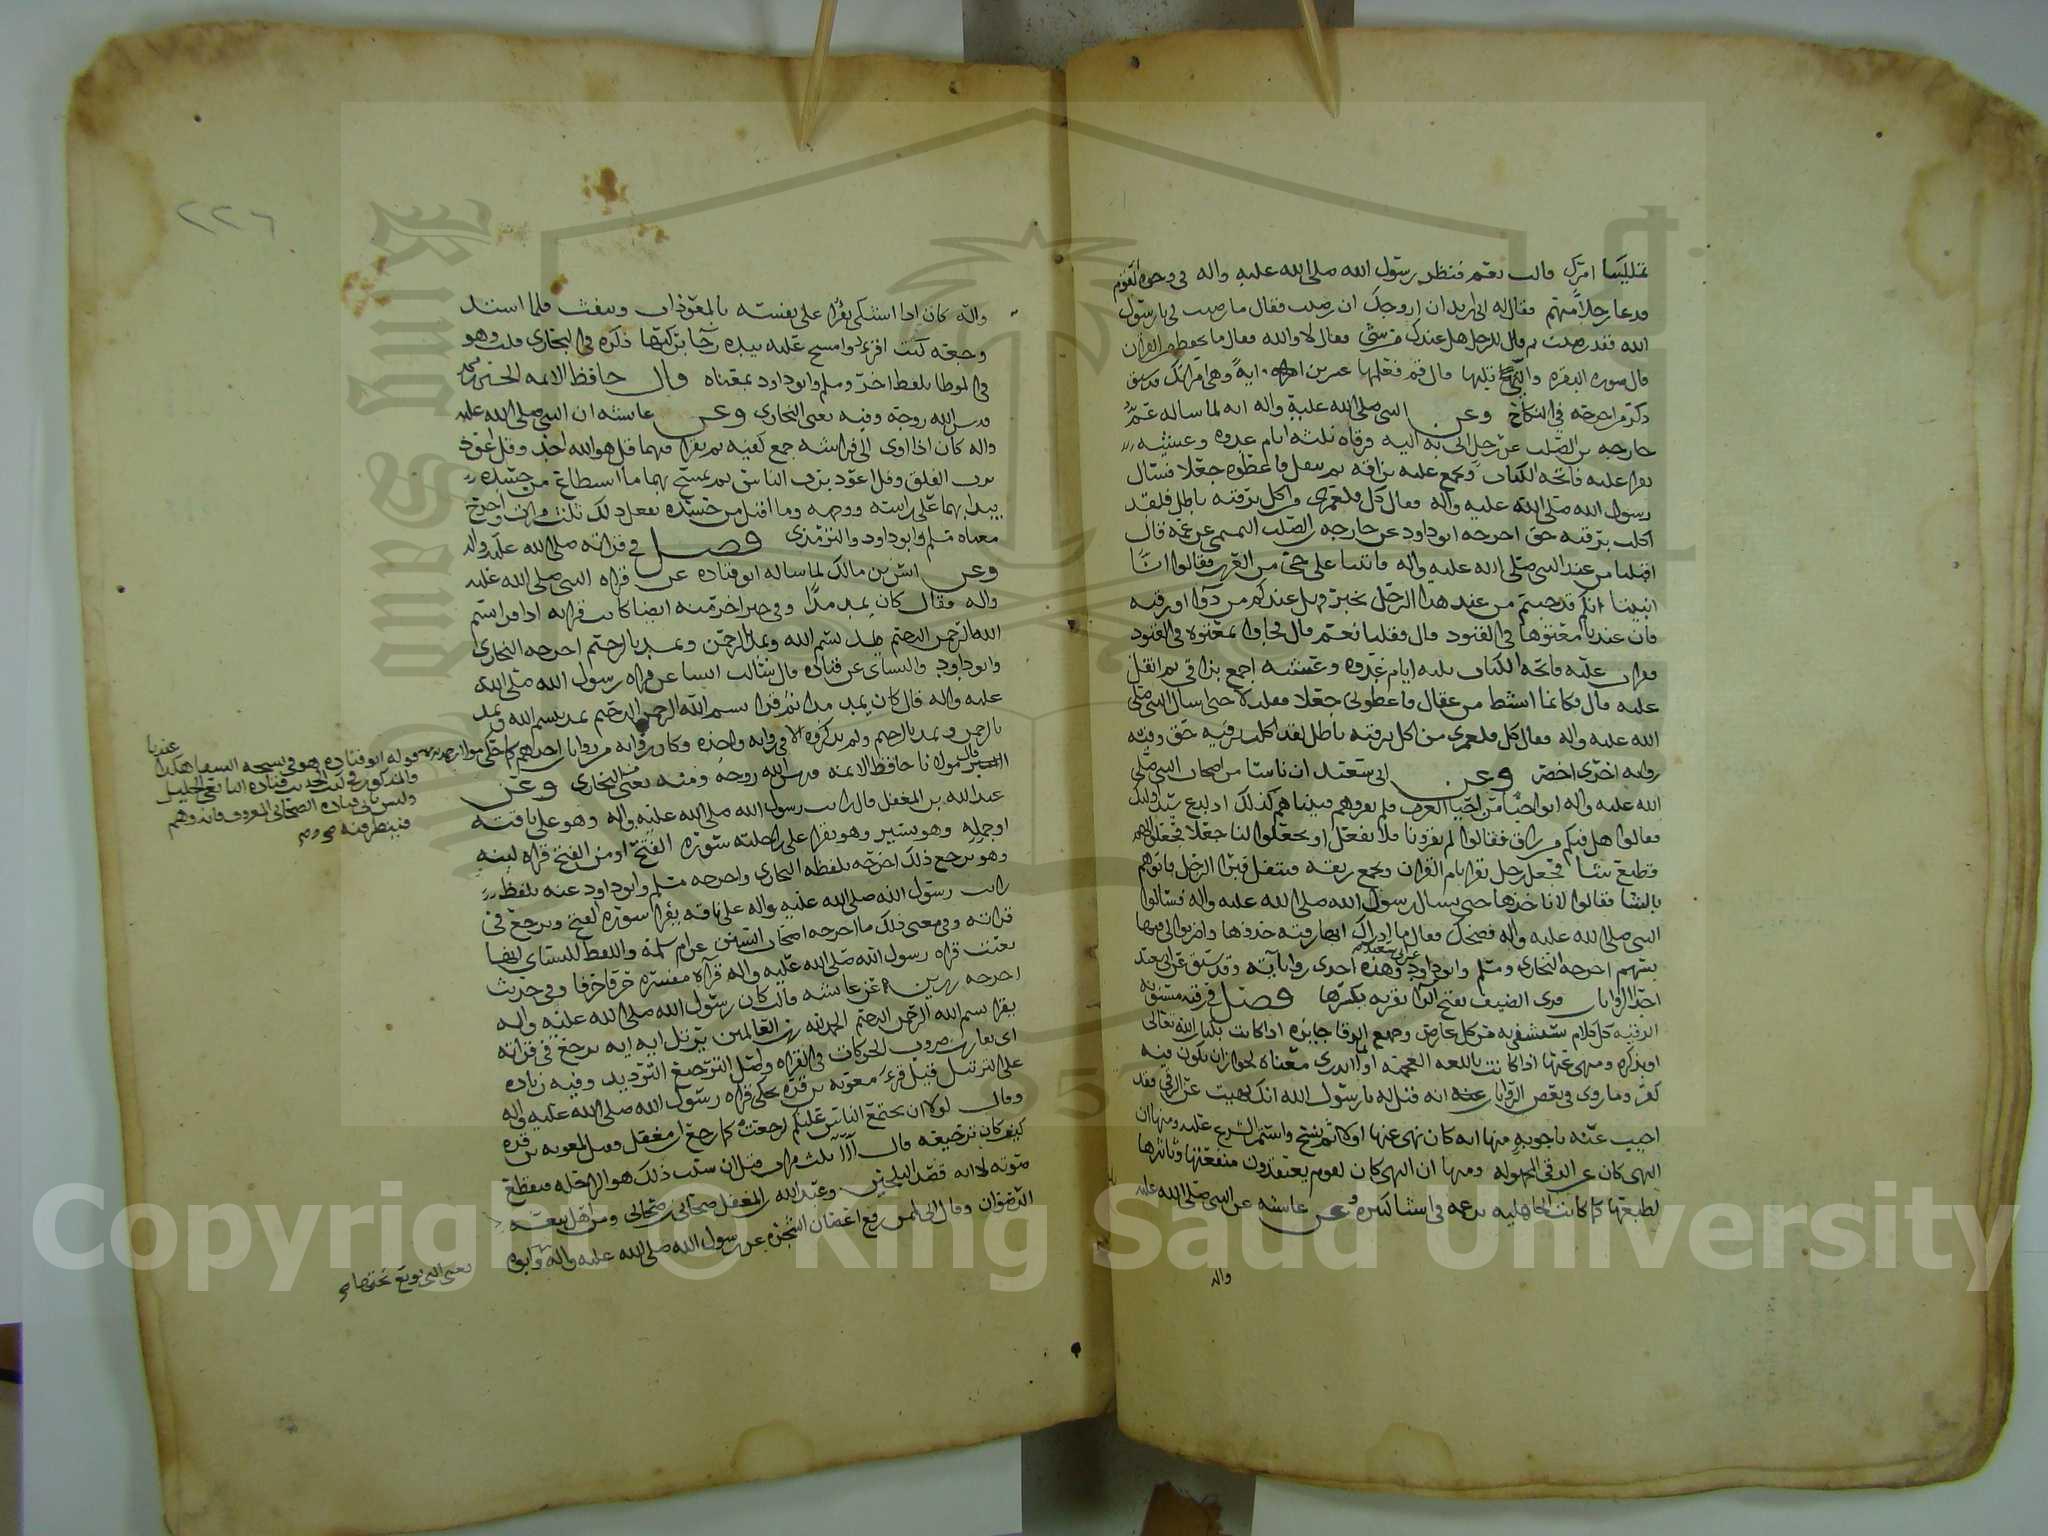 تملكينا امرك قالت نعم فنظر رسول الله صلى الله عليه واله في وجوه القوم
فدعا رجلا منهم فقال له اني اريد ان ازوجك ان رضيت فقال ما رضيت لي يا رسول
الله فقد رضيت ثم قال للرجل هل عندك من شي فقال لا والله فقال ما تحفظ من القران
قال سوره البقره والتي تليها قال قم فعلمها عشرين ايه وهي امراتك قد سبق
ذكر من اخرجه في النكاح وعن النبي صلى الله عليه واله انه لما ساله عم
خارجه بن الصلت عن رجل اتى به اليه ورقاه ثلثه ايام غدوه وعشيه
يقرا عليه فاتحه الكتاب ويجمع عليه بزاقه ثم يتفل فاعطوه جعلا فسال
رسول الله صلى الله عليه واله فقال كل فلعمري من اكل برقيه باطل فلقد
اكلت برقيه حق اخرجه ابو داود عن خارجه بن الصلت التميمي عن عمه قال
اقبلنا من عند النبي صلى الله عليه واله فاتينا على حي من العرب فقالوا انا
انبينا انكم قد جيتم من عند هذا الرجل بخير فهل عندكم من دوا او رقيه
فان عندنا معتوها في القيود قال فقلنا نعم قال فجاوا بمعتوه في القيود
فقرات عليه فاتحه الكتاب ثلثه ايام غدوه وعشيه اجمع بزاقي ثم اتفل
عليه قال فكانما انشط من عقال فاعطوني جعلا فقلت لا حتى اسال النبي صلى
الله عليه واله فقال كل فلعمري من اكل برقيه باطل لقد اكلت برقيه حق وفيه
روايه اخرى اخصر وعن ابي سعيد ان ناسا من اصحاب النبي صلى
الله عليه واله اتوا حيا من احيا العرب فلم يقروهم فبينما هم كذلك اذ لدغ سيد اوليك
فقالوا هل فيكم من راق فقالوا لم تقرونا فلا نفعل او تجعلوا لنا جعلا فجعلوا لهم
قطيع شا فجعل رجل يقرا بام القران ويجمع ريقه ويتفل فبرا الرجل فاتوهم
بالشا فقالوا لا ناخذها حتى نسال رسول الله صلى الله عليه واله فسالوا
النبي صلى الله عليه واله فضحك وقال ما ادراك انها رقيه خذوها واضربوا لي فيها
بسهم اخرجه البخاري ومسلم وابو داود وهذه احدى رواياته وقد سبق عن ابي سعيد
فصل في رقيه
الرقيه كل كلام يستشفى به من كل عارض وجميع الرقا جايزه اذا كانت بكلام الله تعالى
او بذكره ومنهي عنها اذا كانت باللغه العجميه او لما لا يدرى معناه لجواز ان يكون فيه
كفر وما روي في بعض الروايات عنه انه قيل له يا رسول الله انك نهيت عن الرقى فقد
اجيب عنه باجوبه منها انه كان نهى عنها اولا ثم نسخ واستمر الشرع عليه ومنها ان
النهي كان عن الرقى المجهوله ومنها ان النهي كان لقوم يعتقدون منفعتها وتاثيرها
لطبعها كما كانت الجاهليه تزعمه في اشيا كثيره وعن عايشه عن النبي صلى الله عليه
واله
٢٢٦
واله كان اذا اشتكى يقرا على نفسه بالمعوذات وينفث فلما اشتد
وجعه كنت اقرا وامسح عليه بيده رجا بركتها ذكره في البخاري قلت وهو
في الموطا بلفظ اخر ومسلم وابو داود بمعناه وقال حافظ الايمه
قدس الله روحه وفيه يعني البخاري وعن عايشه ان النبي صلى الله عليه
واله كان اذا اوى الى فراشه جمع كفيه ثم يقرا فيهما قل هو الله احد وقل اعوذ
برب الفلق وقل اعوذ برب الناس ثم يمسح بهما ما استطاع من جسده
يبدا بهما على راسه ووجهه وما اقبل من جسده يفعل ذلك ثلث مرات واخرج
معناه مسلم وابو داود والترمذي فصل في قراته صلى الله عليه واله
وعن انس بن مالك لما ساله ابو قتاده عن قراه النبي صلى الله عليه
واله فقال كان يمد مدا وفي خبر اخر عنه ايضا كانت قراته اذا قرا بسم
الله الرحمن الرحيم يمد بسم الله ويمد الرحمن ويمد بالرحيم اخرجه البخاري
وابو داود والنسائي عن قتاده قال سالت انسا عن قراه رسول الله صلى الله
عليه واله قال كان يمد مدا ثم قرا بسم الله الرحمن الرحيم يمد بسم الله ويمد
بالرحمن ويمد بالرحيم ولم يذكروه الا في روايه واحده
قال مولانا حافظ الايمه قدس الله روحه وفيه يعني البخاري وعن
عبد الله بن المغفل قال رايت رسول الله صلى الله عليه واله وهو على ناقته
او جمله وهو يسير وهو يقرا على راحلته سوره الفتح او من الفتح قراه لينه
وهو يرجع ذلك اخرجه بلفظه البخاري واخرجه مسلم وابو داود عنه بلفظ
رايت رسول الله صلى الله عليه واله على ناقه يقرا سوره الفتح ويرجع في
قراته وفي معنى ذلك ما اخرجه اصحاب السنن عن ام سلمه واللفظ للنسائي انها
نعتت قراه رسول الله صلى الله عليه واله قراه مفسره حرفا حرفا وفي حديث
اخرجه رزين عن عايشه قالت كان رسول الله صلى الله عليه واله
يقرا بسم الله الرحمن الرحيم الحمد لله رب العالمين يرتل ايه ايه يرجع في قراته
اي تقارب ضروب الحركات في القراه واصل الترجيع الترديد وفيه زياده
على الترتيل قيل قرا معويه بن قره يحكي قراه رسول الله صلى الله عليه واله
وقال لولا ان يجتمع الناس عليكم لرجعت كما رجع ابن مغفل وقيل لمعويه بن قره
كيف كان ترجيعه قال آآآ ثلث مرات
صوته لا انه قصد التلحين وعبد الله بن المغفل صحابي بن صحابي ومن اهل بيعه
الرضوان وقال اني لمن رفع اغصان الشجره عن رسول الله صلى الله عليه واله وابوه
قوله ابو قتاده هو في نسخه السماع هكذا عندنا
والمذكور في كتب الحديث قتاده التابعي الجليل
وليس بابي قتاده الصحابي المعروف فانه وهم
فينظر فيه
يعني التي بويع تحتها